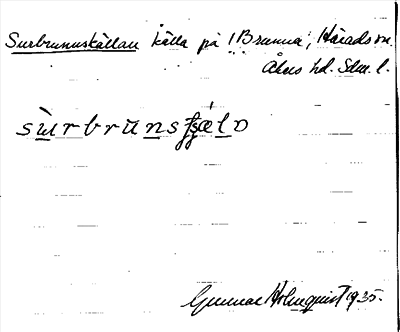 Surbrunnskällan källa på !Brunna, Härads sn.
Åkers hd. Sdm. l.
sùrbrunsʃǽlɒ
Gunnar Holmquist 1935.